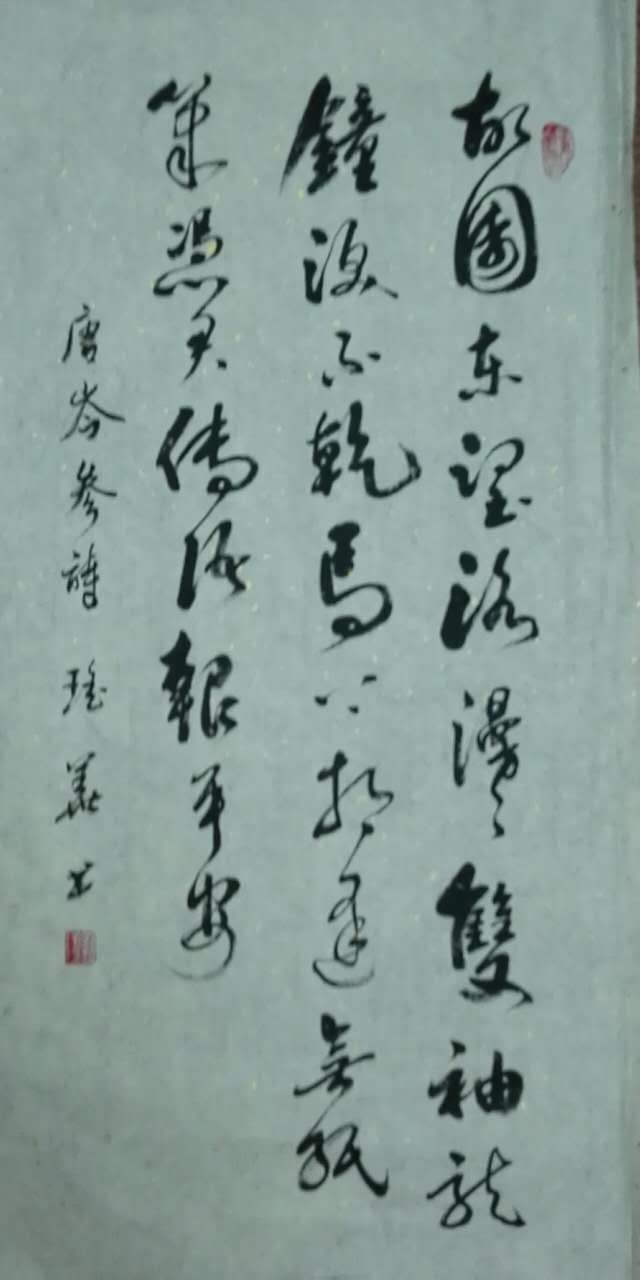 故園東望路漫漫雙袖龍
鐘淚不乾馬上相逢無紙
筆憑君傳語報平安
唐岑參詩 瑤華書